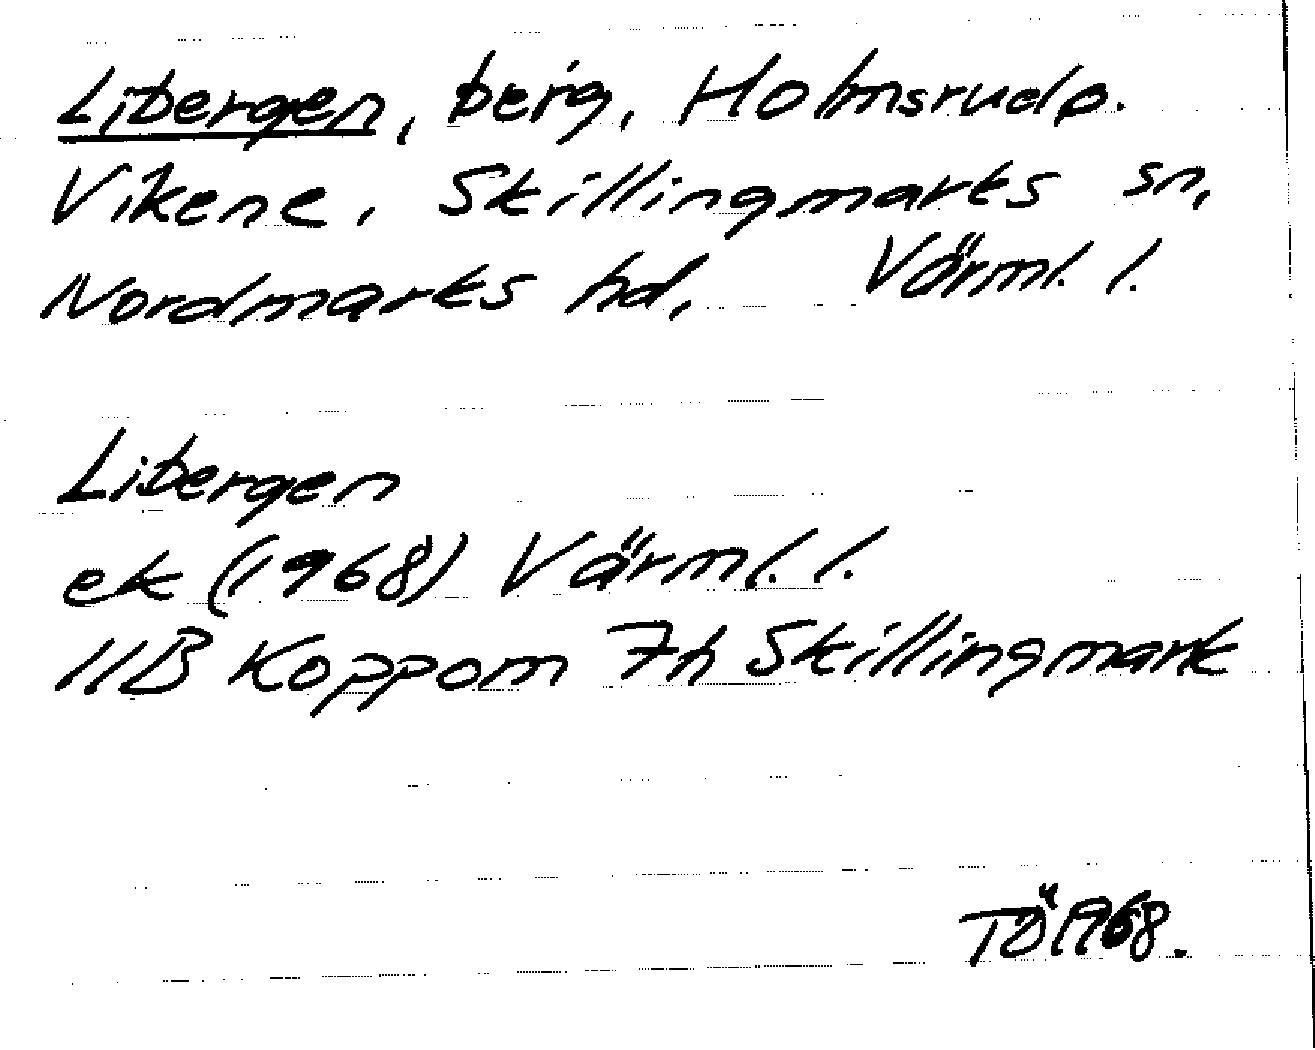 Libergen, berg, Holmsrud o.
Vikene, Skillingmarks sn,
Nordmarks hd, Värml. l.
Libergen
ek (1968) Värml. l.
11B Koppom 7h Skillingmark
TÖ 1968.